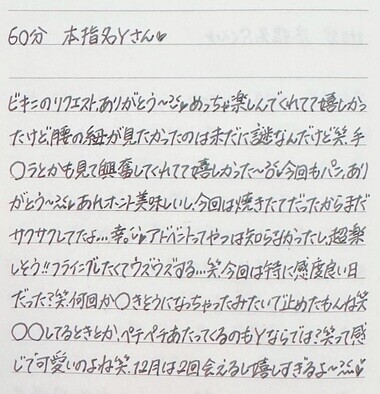 60分 本指名Yさん♥
ビキニのリクエストありがとう〜♥めっちゃ楽しんでくれてて嬉しかっ
たけど腰の紐が見たかったのは未だに謎なんだけど笑、手
〇ラとかも見て興奮してくれてて嬉しかった〜今回もパン、あり
がとう〜あれホント美味しいし、今回は焼きたてだったからまだ
サクサクしてたよ...幸。アドベントってやつは知らなかったし、超楽
しそう!!フライングしたくてウズウズする...笑、今回は特に感度良い日
だった?笑、何回か〇きそうになっちゃったみたいで止めたもんね笑
〇〇してるときとか、ペチペチあたってくるのもYならでは?笑って感
じで可愛いのよね笑、12月は2回会えるし嬉しすぎるよ〜♥